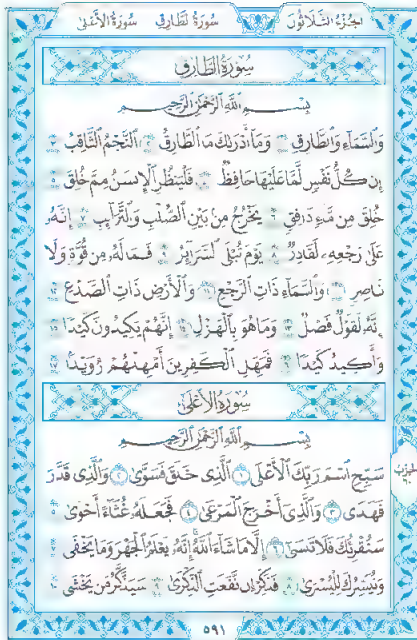 الجزء الثلاثون سورة الطارق سورة الأعلى
سورة الطارق
بسم الله الرحمن الرحيم
والسماء والطارق ١ وما أدرىك ما الطارق ٢ النجم الثاقب ٣
إن كل نفس لما عليها حافظ ٤ فلينظر الإنسن مم خلق ٥
خلق من ماء دافق ٦ يخرج من بين الصلب والترائب ٧ إنه
على رجعه لقادر ٨ يوم تبلى السرائر ٩ فما له من قوة ولا
ناصر ١٠ والسماء ذات الرجع ١١ والأرض ذات الصدع ١٢
إنه لقول فصل ١٣ وما هو بالهزل ١٤ إنهم يكيدون كيدا ١٥
وأكيد كيدا ١٦ فمهل الكفرين أمهلهم رويدا ١٧
سورة الأعلى
بسم الله الرحمن الرحيم
سبح اسم ربك الأعلى ١ الذى خلق فسوى ٢ والذى قدر
فهدى ٣ والذى أخرج المرعى ٤ فجعله غثاء أحوى ٥
سنقرئك فلا تنسى ٦ إلا ما شاء الله إنه يعلم الجهر وما يخفى ٧
ونيسرك لليسرى ٨ فذكر إن نفعت الذكرى ٩ سيذكر من يخشى ١٠
٥٩١